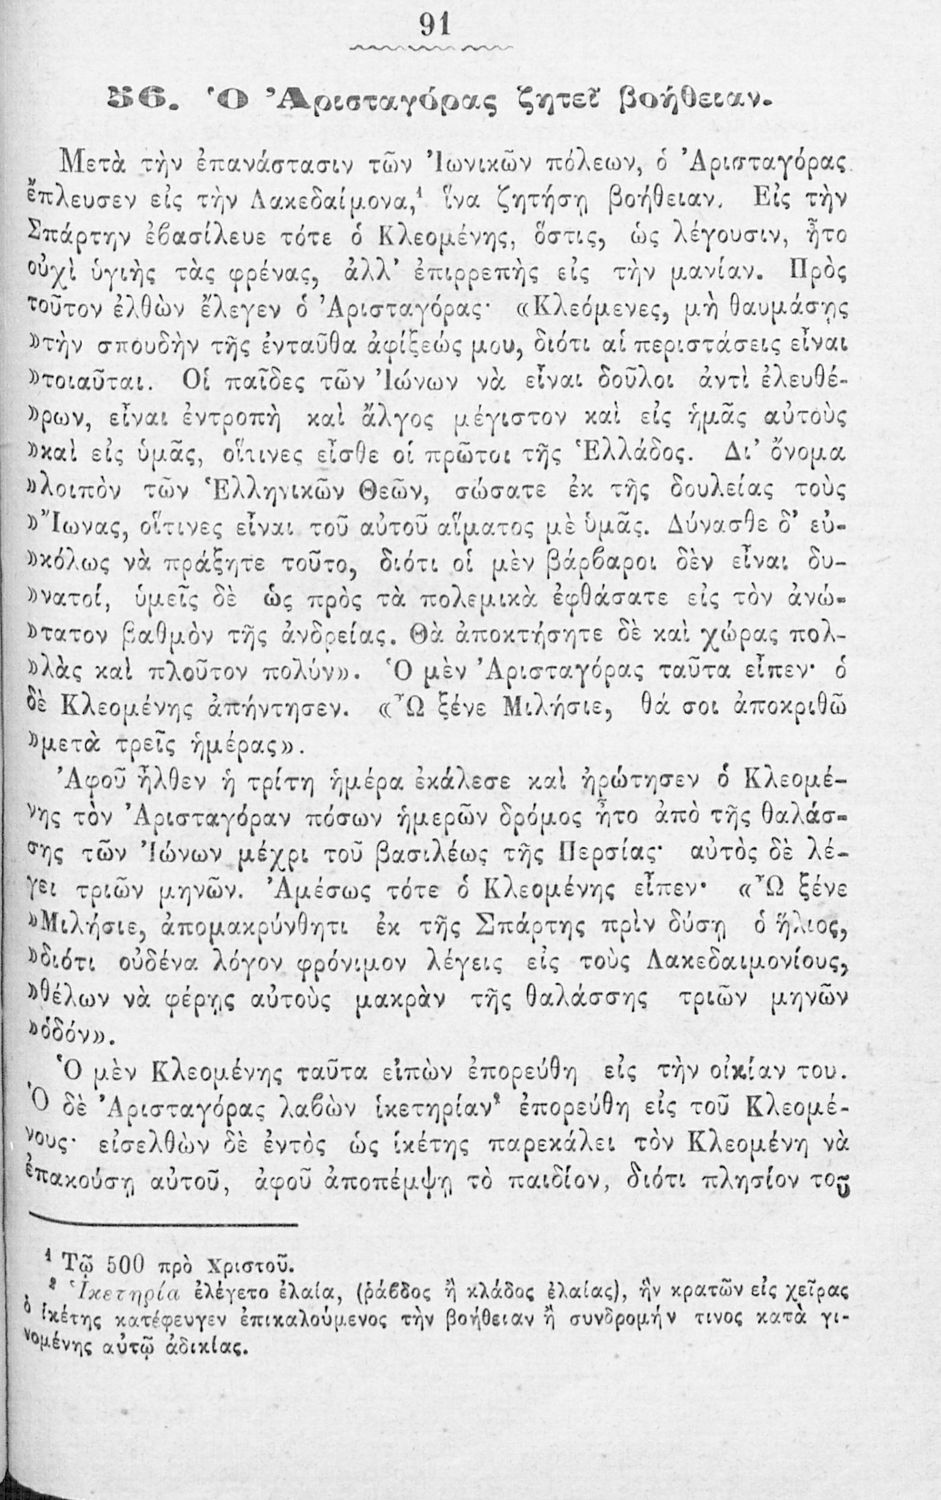 91
56. Ὁ Ἀρισταγόρας ζητεῖ βοήθειαν.
Μετὰ τὴν ἐπανάστασιν τῶν Ἰωνικῶν πόλεων, ὁ Ἀρισταγόρας
ἔπλευσεν εἰς τὴν Λακεδαίμονα,¹ ἵνα ζητήσῃ βοήθειαν. Εἰς τὴν
Σπάρτην ἐβασίλευε τότε ὁ Κλεομένης, ὅστις, ὡς λέγουσιν, ἦτο
οὐχὶ ὑγιὴς τὰς φρένας, ἀλλ' ἐπιρρεπὴς εἰς τὴν μανίαν. Πρὸς
τοῦτον ἐλθὼν ἔλεγεν ὁ Ἀρισταγόρας· «Κλεόμενες, μὴ θαυμάσῃς
»τὴν σπουδὴν τῆς ἐνταῦθα ἀφίξεώς μου, διότι αἱ περιστάσεις εἶναι
»τοιαῦται. Οἱ παῖδες τῶν Ἰώνων νὰ εἶναι δοῦλοι ἀντὶ ἐλευθέ-
»ρων, εἶναι ἐντροπὴ καὶ ἄλγος μέγιστον καὶ εἰς ἡμᾶς αὐτοὺς
»καὶ εἰς ὑμᾶς, οἵτινες εἶσθε οἱ πρῶτοι τῆς Ἑλλάδος. Δι' ὄνομα
»λοιπὸν τῶν Ἑλληνικῶν Θεῶν, σώσατε ἐκ τῆς δουλείας τοὺς
»Ἴωνας, οἵτινες εἶναι τοῦ αὐτοῦ αἵματος μὲ ὑμᾶς. Δύνασθε δ' εὐ-
»κόλως νὰ πράξητε τοῦτο, διότι οἱ μὲν βάρβαροι δὲν εἶναι δυ-
»νατοί, ὑμεῖς δὲ ὡς πρὸς τὰ πολεμικὰ ἐφθάσατε εἰς τὸν ἀνώ-
»τατον βαθμὸν τῆς ἀνδρείας. Θὰ ἀποκτήσητε δὲ καὶ χώρας πολ-
»λὰς καὶ πλοῦτον πολύν». Ὁ μὲν Ἀρισταγόρας ταῦτα εἶπεν· ὁ
δὲ Κλεομένης ἀπήντησεν. «Ὦ ξένε Μιλήσιε, θά σοι ἀποκριθῶ
»μετὰ τρεῖς ἡμέρας».
Ἀφοῦ ἦλθεν ἡ τρίτη ἡμέρα ἐκάλεσε καὶ ἠρώτησεν ὁ Κλεομέ-
νης τὸν Ἀρισταγόραν πόσων ἡμερῶν δρόμος ἦτο ἀπὸ τῆς θαλάσ-
σης τῶν Ἰώνων μέχρι τοῦ βασιλέως τῆς Περσίας· αὐτὸς δὲ λέ-
γει τριῶν μηνῶν. Ἀμέσως τότε ὁ Κλεομένης εἶπεν· «Ὦ ξένε
»Μιλήσιε, ἀπομακρύνθητι ἐκ τῆς Σπάρτης πρὶν δύσῃ ὁ ἥλιος,
»διότι οὐδένα λόγον φρόνιμον λέγεις εἰς τοὺς Λακεδαιμονίους,
»θέλων νὰ φέρῃς αὐτοὺς μακρὰν τῆς θαλάσσης τριῶν μηνῶν
»ὁδόν».
Ὁ μὲν Κλεομένης ταῦτα εἰπὼν ἐπορεύθη εἰς τὴν οἰκίαν του.
Ὁ δὲ Ἀρισταγόρας λαβὼν ἱκετηρίαν² ἐπορεύθη εἰς τοῦ Κλεομέ-
νους· εἰσελθὼν δὲ ἐντὸς ὡς ἱκέτης παρεκάλει τὸν Κλεομένη νὰ
ἐπακούσῃ αὐτοῦ, ἀφοῦ ἀποπέμψῃ τὸ παιδίον, διότι πλησίον τοῦ
¹ Τῷ 500 πρὸ Χριστοῦ.
² Ἱκετηρία ἐλέγετο ἐλαία, (ῥάβδος ἢ κλάδος ἐλαίας), ἣν κρατῶν εἰς χεῖρας
ὁ ἱκέτης κατέφευγεν ἐπικαλούμενος τὴν βοήθειαν ἢ συνδρομήν τινος κατὰ γι-
νομένης αὐτῷ ἀδικίας.